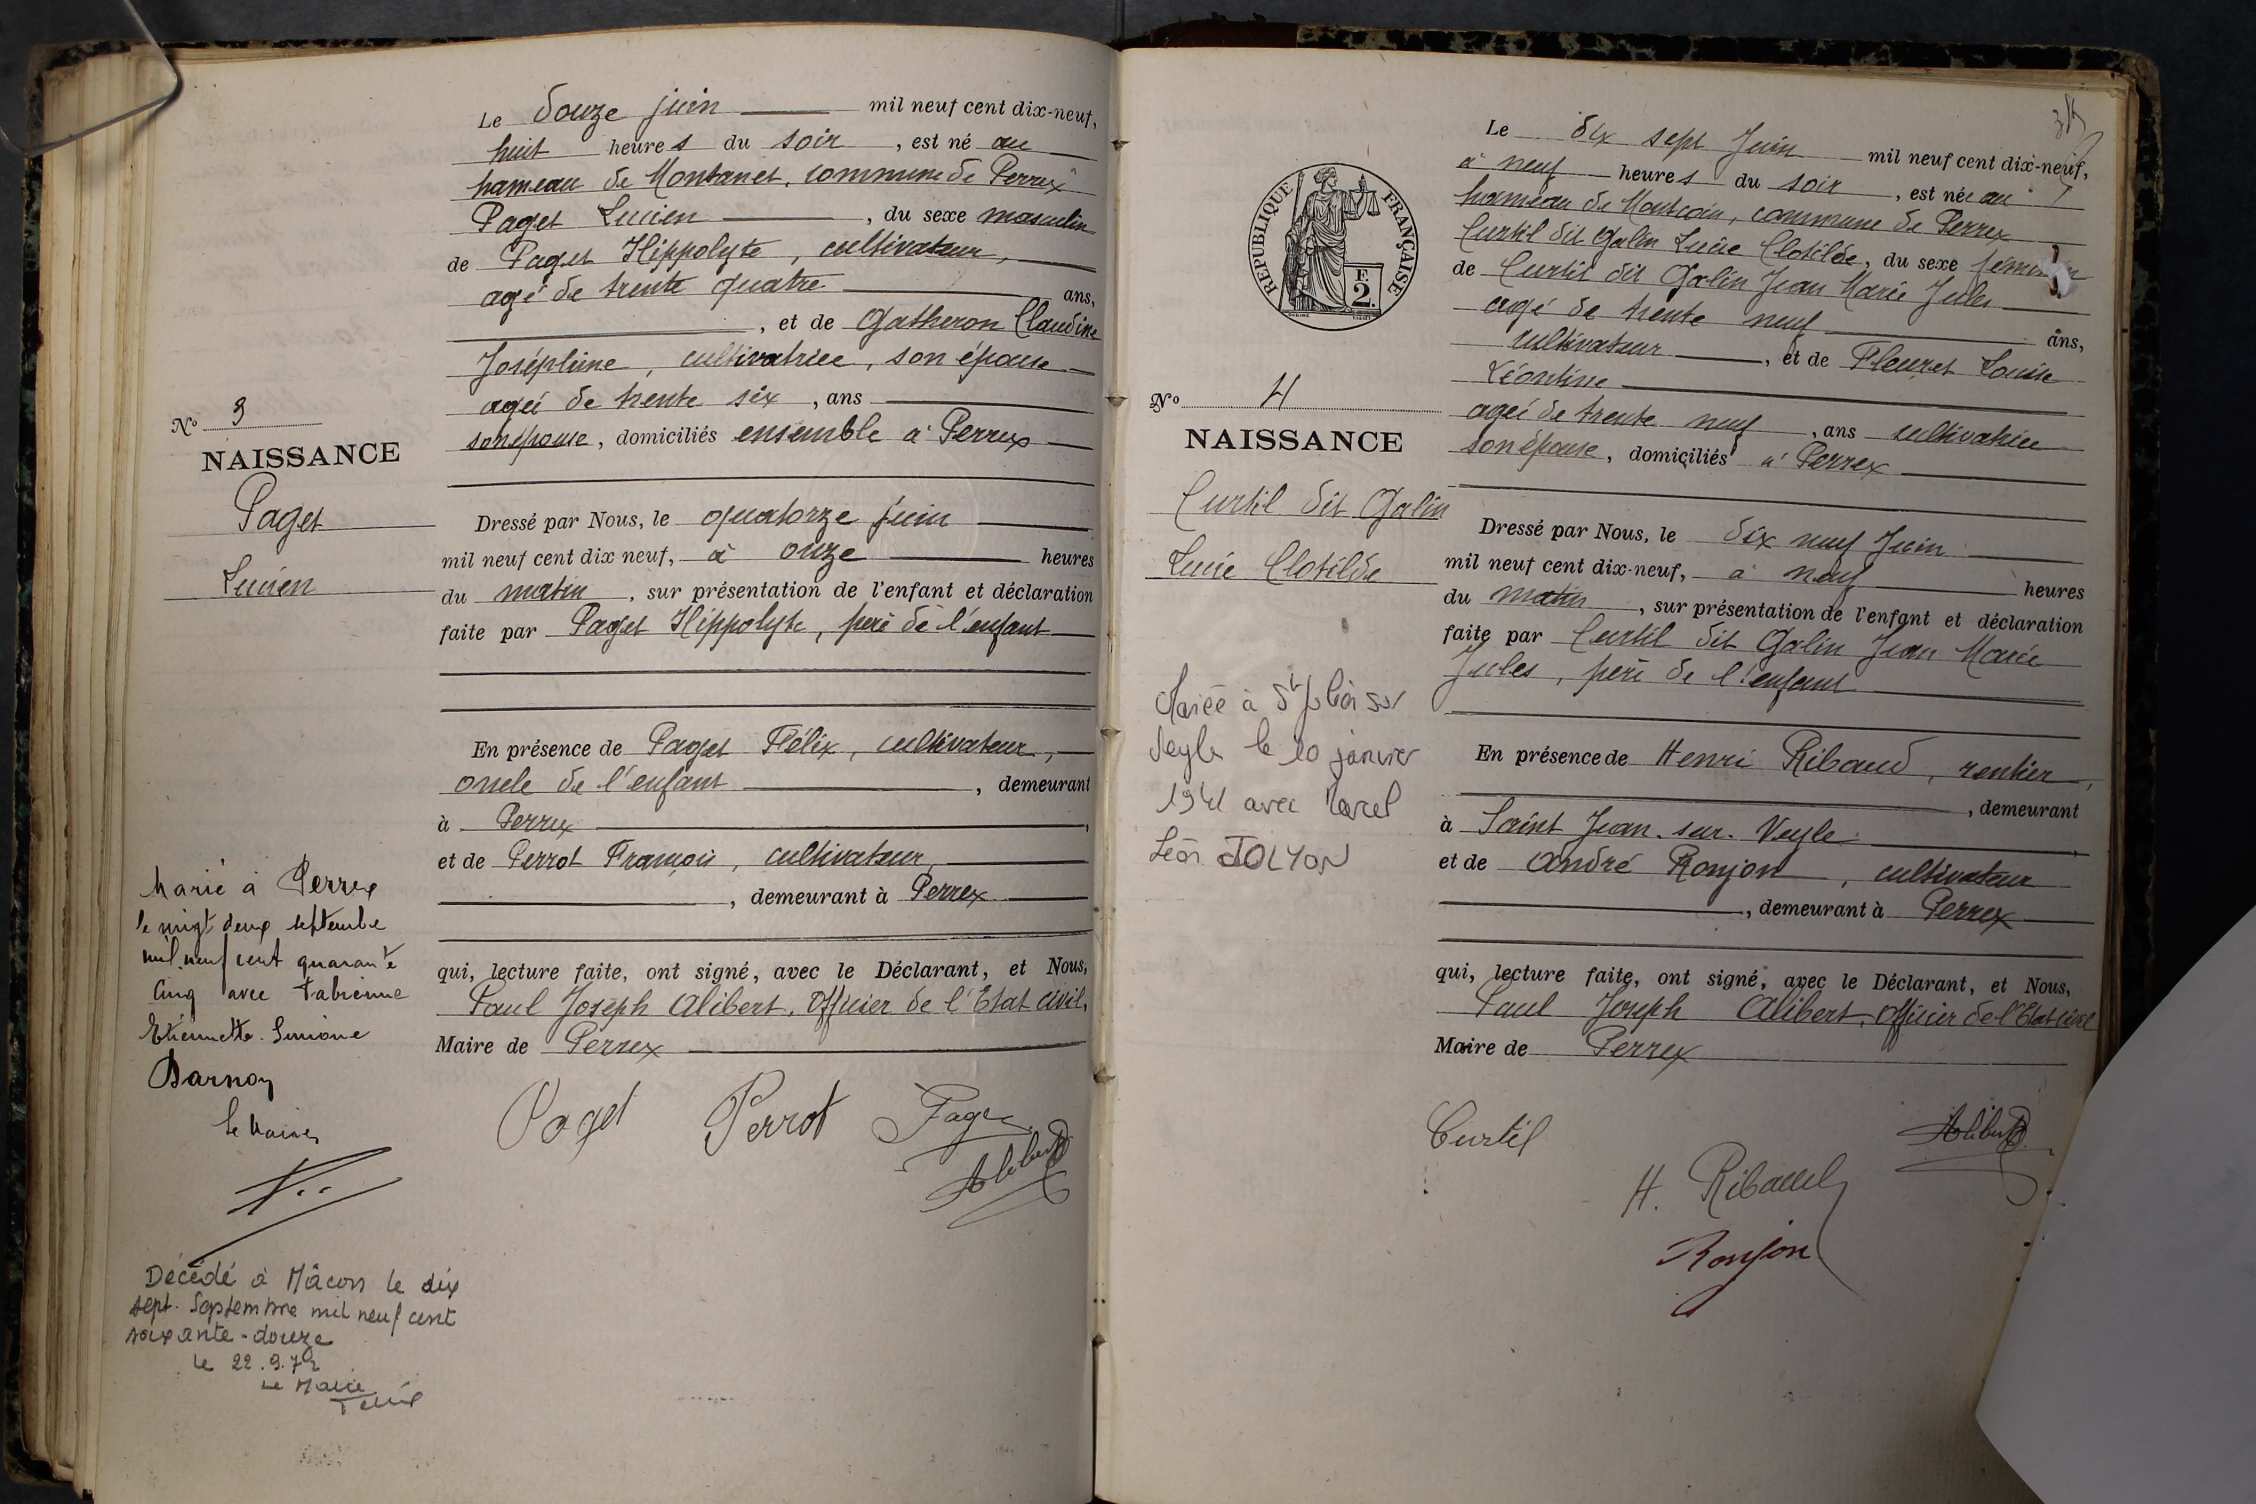 Le douze juin mil neuf cent dix-neuf,
huit heures du soir, est né au
hameau de Montanet, commune de Perrex
Paget Lucien, du sexe masculin
de Paget Hippolyte, cultivateur,
agé de trente quatre ans,
, et de Gatheron Claudine
Joséphine, cultivatrice, son épouse
agée de trente six, ans
son épouse, domiciliés ensemble à Perrex
N° 3
NAISSANCE
Paget
Lucien
Dressé par Nous, le quatorze juin
mil neuf cent dix neuf, à onze heures
du matin, sur présentation de l'enfant et déclaration
faite par Paget Hippolyte, père de l'enfant
En présence de Paget Félix, cultivateur,
oncle de l'enfant, demeurant
à Perrex,
et de Perrot François, cultivateur,
, demeurant à Perrex
qui, lecture faite, ont signé, avec le Déclarant, et Nous,
Paul Joseph Alibert, Officier de l'Etat civil,
Maire de Perrex
Paget Perrot Paget
Alibert
Marié à Perrex
le vingt deux septembre
mil neuf cent quarante
cinq avec Fabienne
Etiennette Simone
Darnoy
Le Maire,
Décédé à Mâcon le dix
sept. Septembre mil neuf cent
soixante-douze
le 22.9.72
Le Maire
Le dix sept Juin mil neuf cent dix-neuf,
à neuf heures du soir, est née au
hameau de Montcoin, commune de Perrex
Curtil dit Galin Lucie Clotilde, du sexe féminin
de Curtil dit Galin Jean Marie Jules
agé de trente neuf ans,
cultivateur, et de Pleuret Louise
Léontine
agée de trente neuf, ans cultivatrice
son épouse, domiciliés à Perrex
REPUBLIQUE FRANÇAISE
F
2.
N° 4
NAISSANCE
Curtil dit Galin
Lucie Clotilde
Dressé par Nous, le dix neuf Juin
mil neuf cent dix-neuf, à neuf heures
du matin, sur présentation de l'enfant et déclaration
faite par Curtil dit Galin Jean Marie
Jules, père de l'enfant
En présence de Henri Ribaud, rentier,
, demeurant
à Saint Jean-sur-Veyle,
et de André Ronjon, cultivateur
, demeurant à Perrex
qui, lecture faite, ont signé, avec le Déclarant, et Nous,
Paul Joseph Alibert, Officier de l'Etat civil
Maire de Perrex
Curtil Alibert
H. Ribaud
Ronjon
Mariée à St Julien sur
Veyle le 10 janvier
1941 avec Marcel
Léon JOLYON